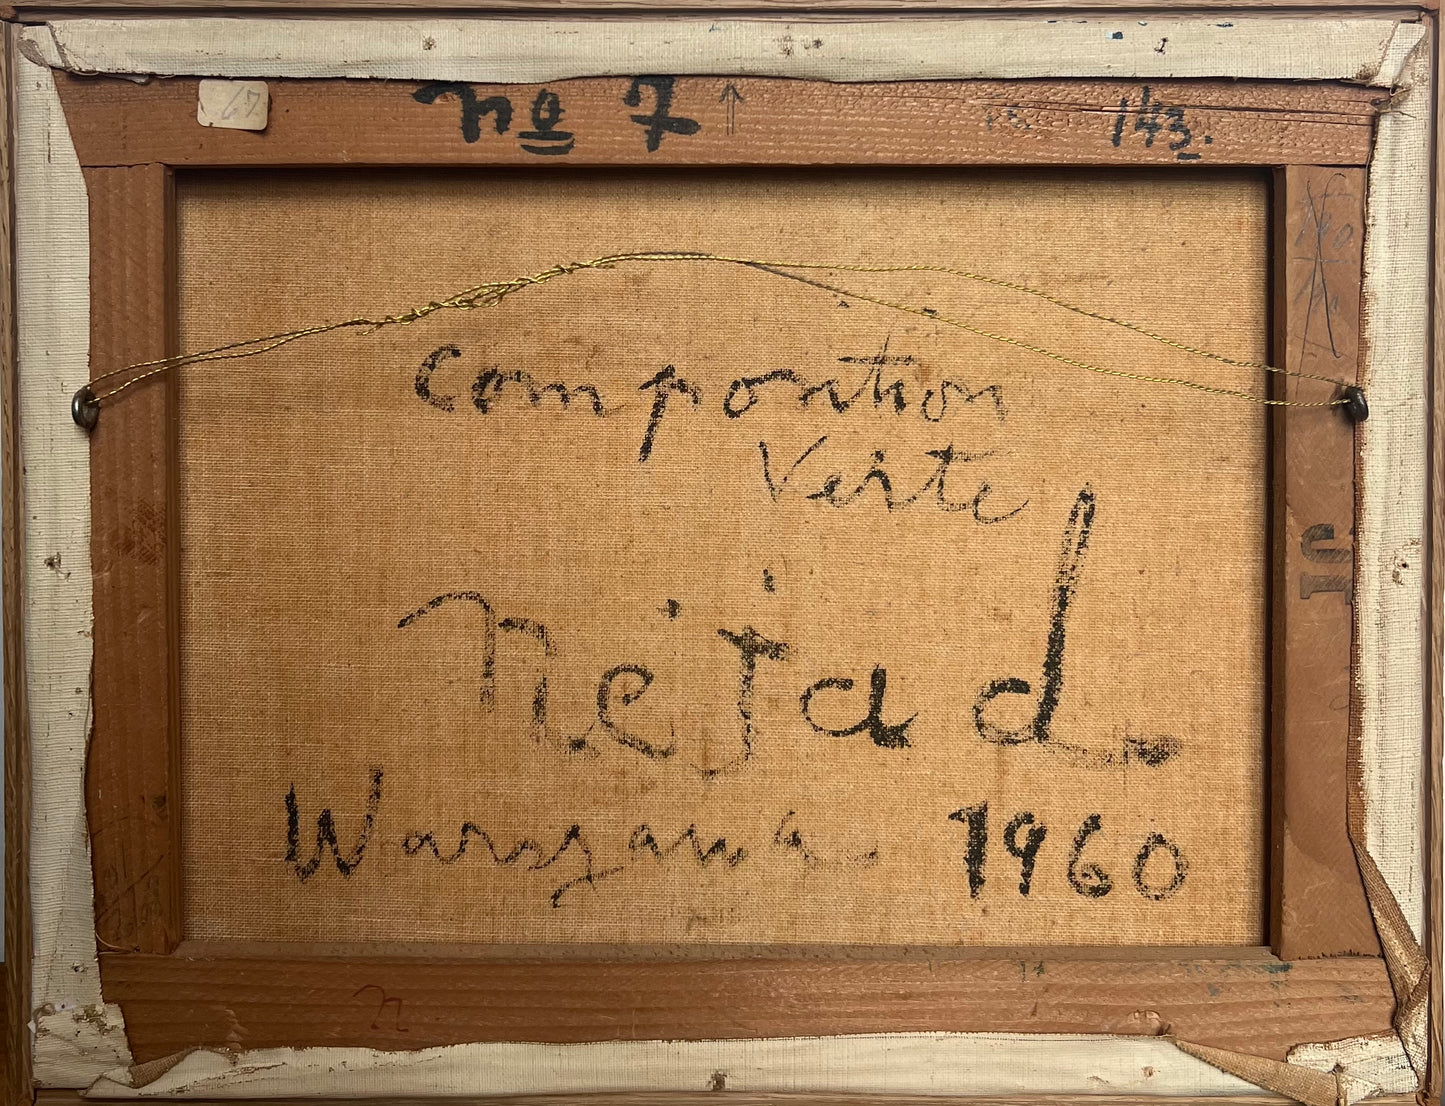 67
no 7 143.
Composition
Verte
nėjad
Warszawa 1960
n